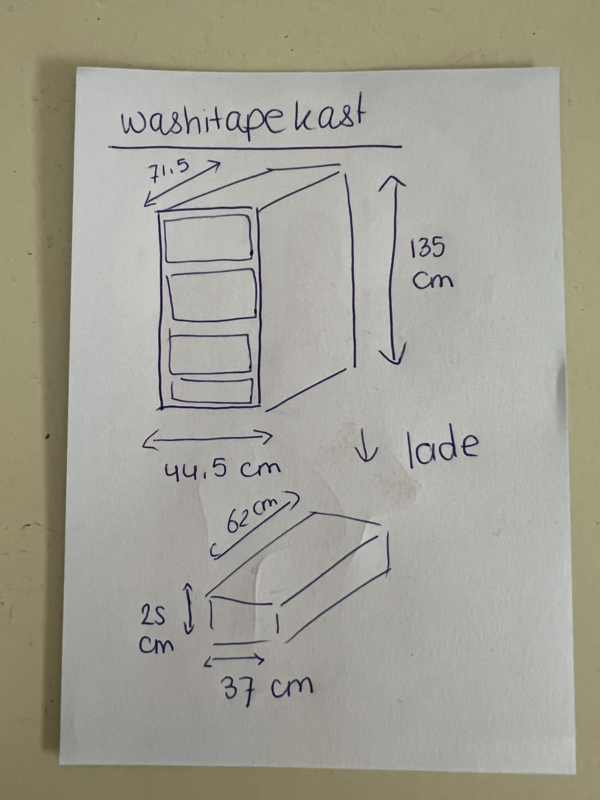 washitapekast
71.5
135
cm
44.5 cm
↓ lade
62cm
25
cm
37 cm